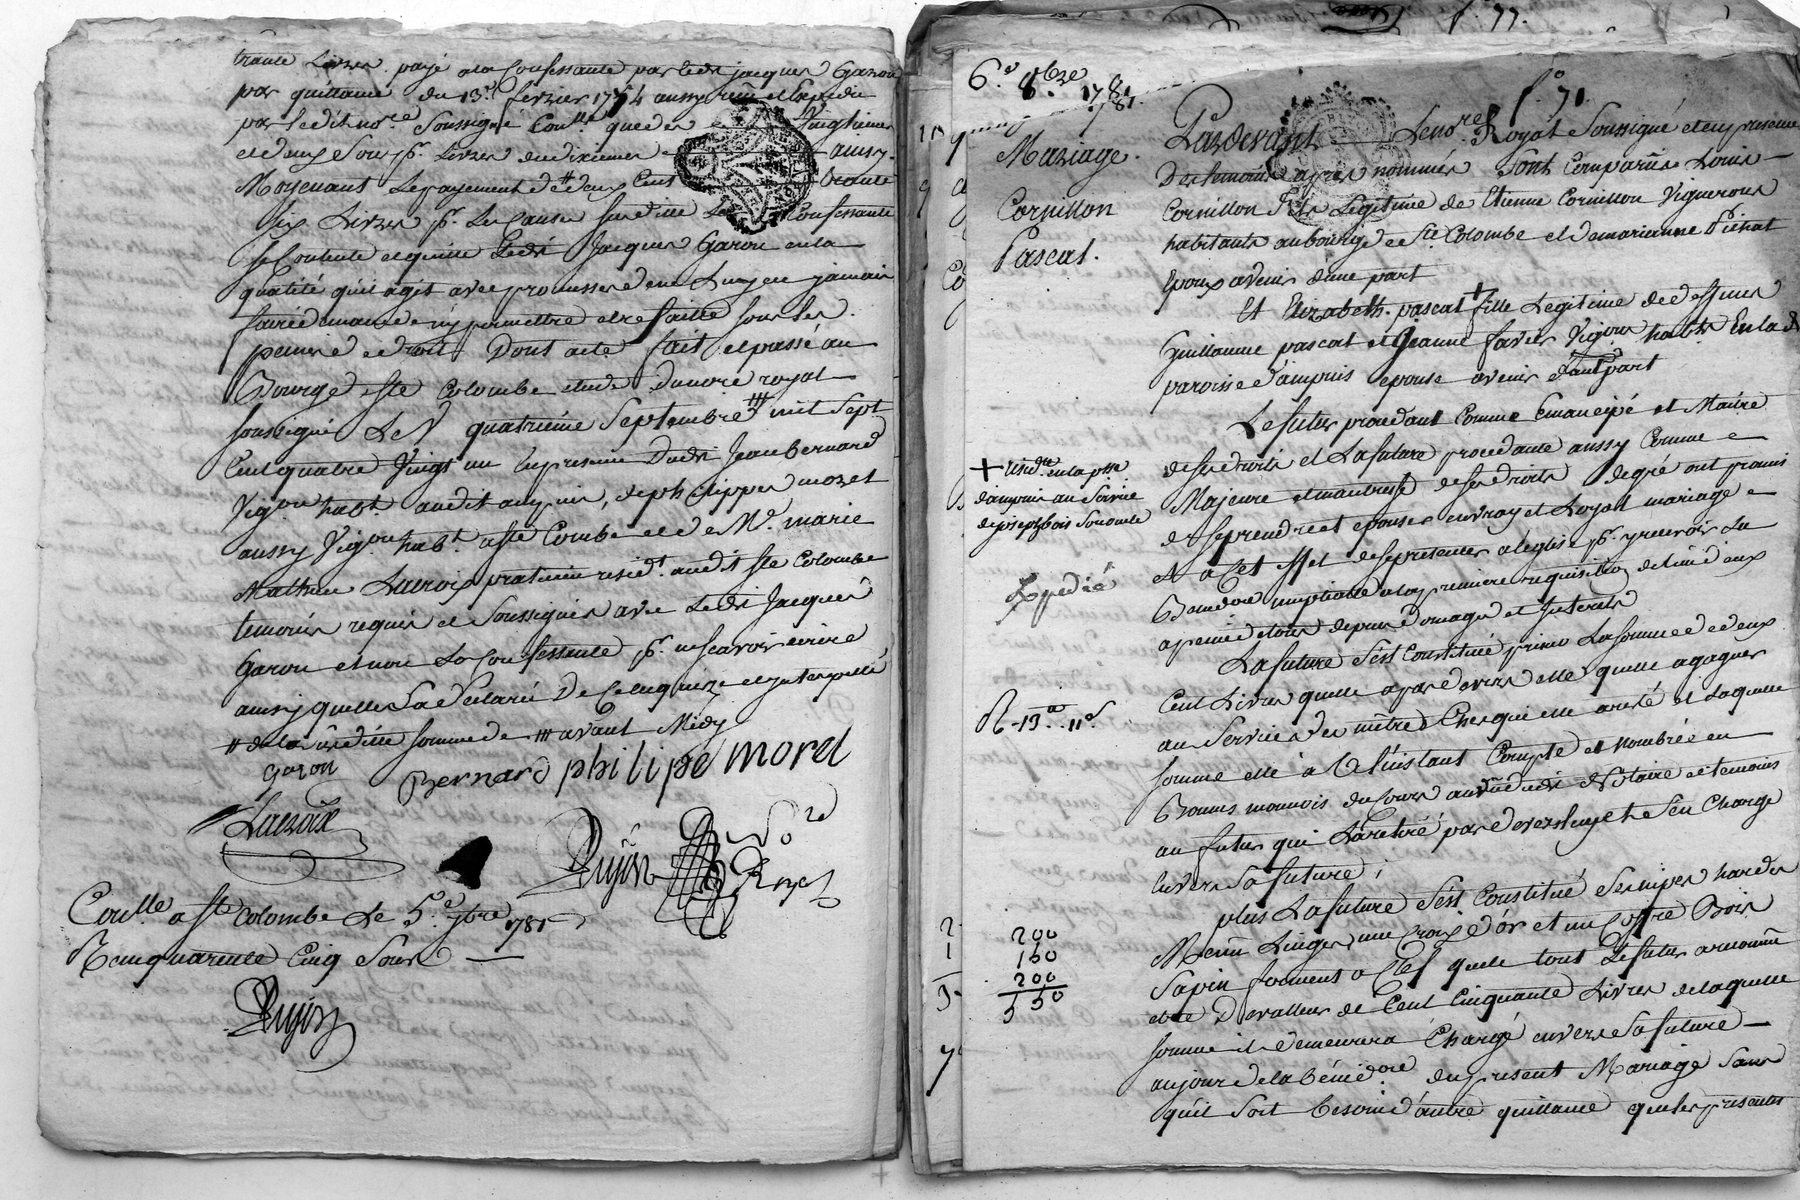 trante Livres payé ala Confessante par ledit jacques Garon
par quittance du 13e. fevrier 1774 aussy
par ledit nore. Soussigné Conllé
et deux Sous pr. Livres aussy.
Moyenant Le payement de # deux Cent trante
six Livres pr. Les Causes susdittes La Confessante
se Contente et quitte ledit Jacques Garon en la
qualité qu'il agit avec promesse de ne Luy en jamais
faire demande ny permettre etre faitte sous les
peines de droit Dont acte fait et passé au
Bourg de ste Colombe etude du nore royal
soussigné Le quatrième Septembre ### mil Sept
Cent quatre Vingt un En presence dudit Jean bernard
Vigon habt. audit ampuis, de philippes morel
aussy Vigon habt. a ste Colombe et de Mr. marie
Mathieu Lacroix praticien resid. audit ste Colombe
temoins requis et Soussignés avec ledit Jacques
Garon et non La Confessante pr. ne scavoir écrire
ainsy quelle l'a déclaré de Ce enquize et interpellé
# de la susditte somme de ### avant Midy
garon
Bernard philipe morel
Lacroix
Dujon Nore Royal
Conllé a ste Colombe Le 5e. 7bre 1781
R quarente Cinq Sous
Dujon
f. 77.
6e. 8bre 1781.
fo. 71.
Mariage.
Cornillon
Pascal.
Pardevant Le nore Royal Soussigné et en presence
Des temoins apres nommés Sont Comparus Louis
Cornillon fils Legitime de Etienne Cornillon Vigneron
habitants au bourg de ste. Colombe et de marianne Pichat
Epoux avenir d'une part
Et Elizabeth pascal + fille Legitime de deffunts
Guillaume pascal et Jeanne favier Vigons habts. En la d
paroisse d'ampuis epouse avenir d'autre part
Le futur procedant Comme Emancipé et Maitre
de ses droits et La future procedante aussy Comme
Majeure et maitresse de ses droits de gré ont promis
de se prendre et epouser en vray et Loyal mariage
et a Cet effet de se presenter a leglise pr. y recevoir La
Bendon nuptiale a la premiere requisition de lun d'eux
a peine de tous depens Domages et Interets
+ residte en la psse
d'ampuis au Service
de joseph bois Son oncle
Expedié
R. 13e. 11s.
La future s'est Constitué primo La somme de deux
Cent Livres quelle a par devers elle quelle a gagner
au Service des mitres Ches qui elle a resté et Laquelle
somme elle a a l'instant Compté et nombrée en
Bonnes monnois du Cours au vu dudit Notaire et temoins
au futur qui L'a retiré par devers luy et s'en Charge
Envers Sa future;
plus La future s'est Constitué ses nipes hardes
Menu Linges, une Croix d'or et un Coffre Bois
Sapin fermant a Clef quele tout Le futur a reconnu
etre De valleur de Cent Cinquante Livres de laquelle
somme il demeurera Chargé envers Sa future
aujour de la bénédon du present Mariage Sans
qu'il Soit besoin d'autre quittance que les presentes
200
150
200
550